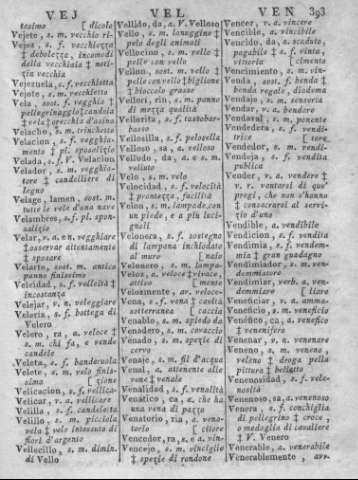 VEJ
VEL
VEN 393
tesimo [ dicolo
Vejete, s. m. vecchio ri-
Vejez, s. f. vecchiezza
‡ debolezza, incomodi
della vecchiaia ‡ noti-
zia vecchia
Vejezuela, s. f. vecchietta
Vejote, s. m. vecchietto
Vela, sost. f. vegghia ‡
pellegrinaggio ‡ candela
‡ vela ‡ orecchia d'asino
Velacho, s. m. trinchetto
Velacion, s. f. vegghia-
mento ‡ pl. sposalizio
Velada, s. f. V. Velacion
Velador, s. m. vegghia-
tore ‡ candelliere di
legno
Velage, lamen, sost. m.
tutte le vele d'una nave
Velambres, s. f. pl. spon-
salizio
Velar, v. a. e n. vegghiare
‡ osservar attentamente
‡ sposare
Velarte, sost. m. antico
panno finissimo
Veleidad, s. f. velleità ‡
incostanza
Velejar, v. n. veleggiare
Veleria, s. f. bottega di
Velero
Velero, ra, a. veloce ‡
s. m. chi fa, e vende
candele
Veleta, s. f. banderuola
Velete, s. m. velo finis-
simo [ zione
Velicacion, s. f. vellica-
Velicar, v. a. vellicare
Velilla, s. f. candeletta
Velillo, s. m. picciola
vela ‡ velo intessuto di
fiori d'argento
Vellocillo, s. m. dimin.
di Vello
Vellido, da, a. V. Velloso
Vello, s. m. lanuggine ‡
pelo degli animali
Vellocino, s. m. vello ‡
pelle con vello
Vellon, sost. m. vello ‡
pelle con vello ‡ biglione
‡ bioccolo grasse
Vellori, rin, s. m. panno
di mezza qualità
Vellorita, s. f. tastobar-
basso
Vellosilla, s. f. pelosella
Velloso, sa, a. velloso
Velludo, da, a. e s. m.
velluto
Velo, s. m. velo
Velocidad, s. f. velocità
‡ prontezza, facilità
Velon, s. m. lampade con
un piede, e a più luci-
gnoli
Velonera, s. f. sostegno
di lampana inchiodato
al muro [ naio
Velonero, s. m. lampa-
Veloz, a. veloce ‡ vivace,
attivo [ mente
Velozmente, av. veloce-
Vena, s. f. vena ‡ cavità
sotterranea [ caccia
Venablo, s. m. spiedo da
Venadero, s. m. covaccio
Venado, s. m. spezie di
cervo
Venaje, s. m. fil d'acqua
Venal, a. attenente alle
vene ‡ venale
Venalidad, s. f. venalità
Venático, ca, a. che ha
una vena di pazzo
Venatorio, ria, a. vena-
torio [ citore
Vencedor, ra, s. e a. vin-
Vencejo, s. m. vinciglio
‡ spezie di rondone
Vencer, v. a. vincere
Vencible, a. vincibile
Vencido, da, a. scaduto,
pagabile ‡ s. f. vinta,
vittoria [ cimento
Vencimiento, s. m. vin-
Venda, sost. f. benda ‡
benda regale, diadema
Vendaje, s. m. senseria
Vendar, v. a. bendare
Vendaval, s. m. ponente
Vendedera, s. f. vendi-
trice [ tore
Vendedor, s. m. vendi-
Vendeja, s. f. vendita
publica
Vender, v. a. vendere ‡
v. r. vantarsi di que'
pregi, che non s'hanno
‡ consacrarsi al servi-
zio d'uno
Vendible, a. vendibile
Vendicion, s. f. vendita
Vendimia, s. f. vendem-
mia ‡ gran guadagno
Vendimiador, s. m. ven-
demmiatore
Vendimiar, verb. a. ven-
demmiare [ lare
Veneficiar, v. a. amma-
Veneficio, s. m. veneficio
Venéfico, ca, a. venefico
‡ venenifero
Venenar, v. a. venenare
Veneno, s. m. veneno,
veleno ‡ droga pella
pittura ‡ belletto
Venenosidad, s. f. vele-
nosità
Venenoso, sa, a. venenoso
Venera, s. f. conchiglia
di pellegrino ‡ croce,
o medaglia di cavaliere
‡ V. Venero
Venerable, a. venerabile
Venerablemente, avv.